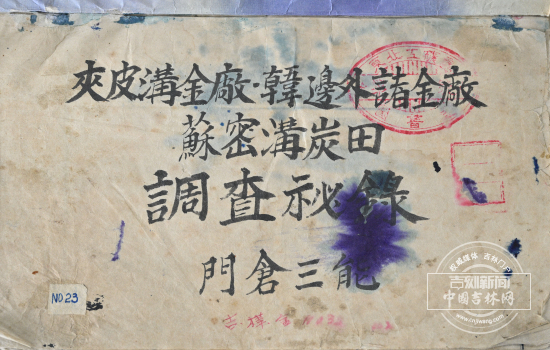 夾皮溝金廠·韓邊外諸金廠
蘇密溝炭田
調查祕錄
門倉三能
NO 23
吉林新闻
中國吉林网
www.cnjiwang.com